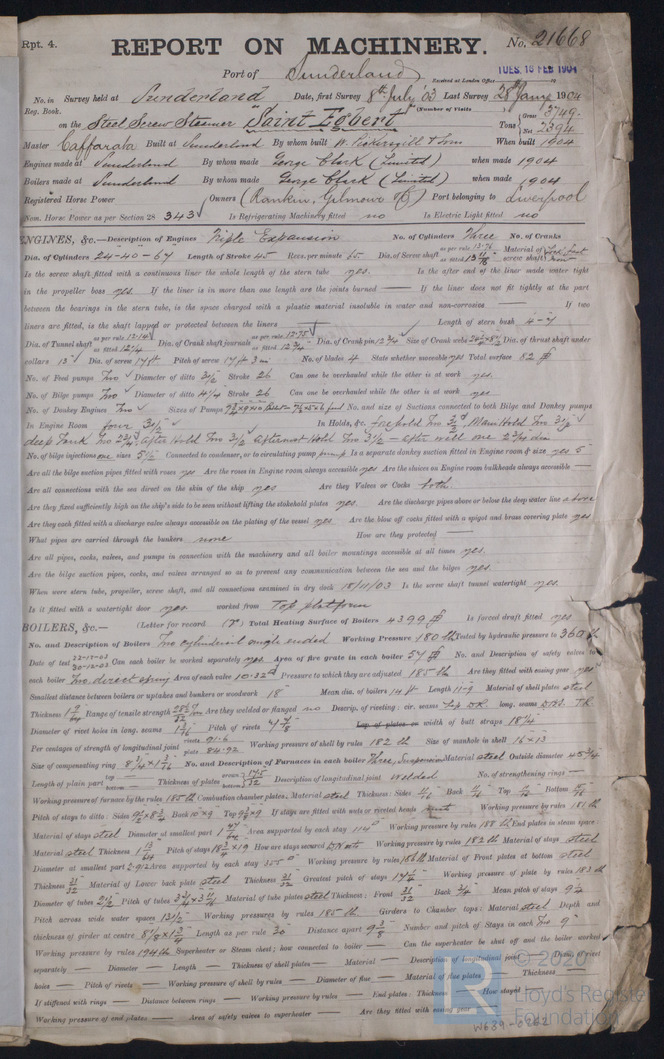 Rpt. 4.
REPORT ON MACHINERY. No. 21668
Port of Sunderland
Received at London Office TUES. 16 FEB 1904
No. in Survey held at Sunderland Date, first Survey 8th July '03 Last Survey 28th Jany 1904
Reg. Book. (Number of Visits
on the Steel Screw Steamer "Saint Egbert" Tons Gross 3749 Net 2394
Master Caffarata Built at Sunderland By whom built W. Pickersgill & Sons When built 1904
Engines made at Sunderland By whom made George Clark (Limited) when made 1904
Boilers made at Sunderland By whom made George Clark (Limited) when made 1904
Registered Horse Power Owners (Rankin, Gilmour & Co) Port belonging to Liverpool
Nom. Horse Power as per Section 28 343 Is Refrigerating Machinery fitted no Is Electric Light fitted no
ENGINES, &c.—Description of Engines Triple Expansion No. of Cylinders Three No. of Cranks
Dia. of Cylinders 24-40-64 Length of Stroke 45 Revs. per minute 65 Dia. of Screw shaft as per rule 13.76 as fitted 13 11/16 Material of screw shaft
Is the screw shaft fitted with a continuous liner the whole length of the stern tube yes. Is the after end of the liner made water tight
in the propeller boss yes. If the liner is in more than one length are the joints burned — If the liner does not fit tightly at the part
between the bearings in the stern tube, is the space charged with a plastic material insoluble in water and non-corrosive — If two
liners are fitted, is the shaft lapped or protected between the liners Length of stern bush 4-7
Dia. of Tunnel shaft as per rule 12.14 as fitted 12 1/4 Dia. of Crank shaft journals as per rule 12.75 as fitted 12 3/4 Dia. of Crank pin 12 3/4 Size of Crank webs Dia. of thrust shaft under
collars 13 Dia. of screw 17 ft Pitch of screw 17 ft 3 in No. of blades 4 State whether moveable yes Total surface 82
No. of Feed pumps Two Diameter of ditto 3 1/2 Stroke 26 Can one be overhauled while the other is at work yes.
No. of Bilge pumps Two Diameter of ditto 4 1/4 Stroke 26 Can one be overhauled while the other is at work yes.
No. of Donkey Engines Two Sizes of Pumps No. and size of Suctions connected to both Bilge and Donkey pumps
In Engine Room four 3 1/2 In Holds, &c. forehold Two Main Hold Two 3 1/2
deep Tank Two After Hold Two 3 1/2 Aftermost Hold Two 3 1/2 — after well one 2 3/4 dia
No. of bilge injections one sizes 5 1/2 Connected to condenser, or to circulating pump pump Is a separate donkey suction fitted in Engine room & size yes 5
Are all the bilge suction pipes fitted with roses yes Are the roses in Engine room always accessible yes Are the sluices on Engine room bulkheads always accessible —
Are all connections with the sea direct on the skin of the ship yes Are they Valves or Cocks both.
Are they fixed sufficiently high on the ship's side to be seen without lifting the stokehold plates yes. Are the discharge pipes above or below the deep water line above
Are they each fitted with a discharge valve always accessible on the plating of the vessel yes. Are the blow off cocks fitted with a spigot and brass covering plate yes
What pipes are carried through the bunkers none How are they protected —
Are all pipes, cocks, valves, and pumps in connection with the machinery and all boiler mountings accessible at all times yes.
Are the bilge suction pipes, cocks, and valves arranged so as to prevent any communication between the sea and the bilges yes.
When were stern tube, propeller, screw shaft, and all connections examined in dry dock 18/11/03 Is the screw shaft tunnel watertight yes.
Is it fitted with a watertight door yes worked from Top platform
BOILERS, &c.— (Letter for record (r) Total Heating Surface of Boilers 4399 Is forced draft fitted yes
No. and Description of Boilers Two cylindrical single ended Working Pressure 180 lb Tested by hydraulic pressure to 360 lb
Date of test 22-12-03 30-12-03 Can each boiler be worked separately yes Area of fire grate in each boiler 57 No. and Description of safety valves to
each boiler Two direct spring Area of each valve 10.32 Pressure to which they are adjusted 185 lb Are they fitted with easing gear yes
Smallest distance between boilers or uptakes and bunkers or woodwork 18" Mean dia. of boilers 14 ft Length 11-9 Material of shell plates steel
Thickness Range of tensile strength Are they welded or flanged no Descrip. of riveting: cir. seams Lap DR. long. seams DBS. TR.
Diameter of rivet holes in long. seams 1 3/16 Pitch of rivets 7 7/8 Lap of plates or width of butt straps 18 1/4
Per centages of strength of longitudinal joint rivets 91.6 plate 84.92 Working pressure of shell by rules 182 lb Size of manhole in shell 16 x 13
Size of compensating ring No. and Description of Furnaces in each boiler Three, Suspension Material steel Outside diameter 45 3/4
Length of plain part top — bottom — Thickness of plates crown bottom Description of longitudinal joint welded No. of strengthening rings —
Working pressure of furnace by the rules 185 lb Combustion chamber plates: Material steel Thickness: Sides Back Top Bottom
Pitch of stays to ditto: Sides Back 10 x 9 Top If stays are fitted with nuts or riveted heads nuts Working pressure by rules 181 lb
Material of stays steel Diameter at smallest part Area supported by each stay 114 Working pressure by rules 188 lb End plates in steam space:
Material steel Thickness Pitch of stays How are stays secured DN&W Working pressure by rules 182 lb Material of stays steel
Diameter at smallest part 2.912 Area supported by each stay 355 Working pressure by rules 186 lb Material of Front plates at bottom steel
Thickness 31/32 Material of Lower back plate steel Thickness 31/32 Greatest pitch of stays Working pressure of plate by rules 183 lb
Diameter of tubes 2 1/2 Pitch of tubes Material of tube plates steel Thickness: Front 31/32 Back 3/4 Mean pitch of stays 9 3/4
Pitch across wide water spaces 13 1/2 Working pressures by rules 185 lb Girders to Chamber tops: Material steel Depth and
thickness of girder at centre Length as per rule 30 Distance apart Number and pitch of Stays in each Two 9"
Working pressure by rules 194 lb Superheater or Steam chest; how connected to boiler — Can the superheater be shut off and the boiler worked
separately — Diameter — Length — Thickness of shell plates — Material — Description of longitudinal joint — Diam. of rivet
holes — Pitch of rivets — Working pressure of shell by rules — Diameter of flue — Material of flue plates — Thickness —
If stiffened with rings — Distance between rings — Working pressure by rules — End plates: Thickness — How stayed —
Working pressure of end plates — Area of safety valves to superheater — Are they fitted with easing gear —
© 2020
Lloyd's Register
Foundation
W639-0262